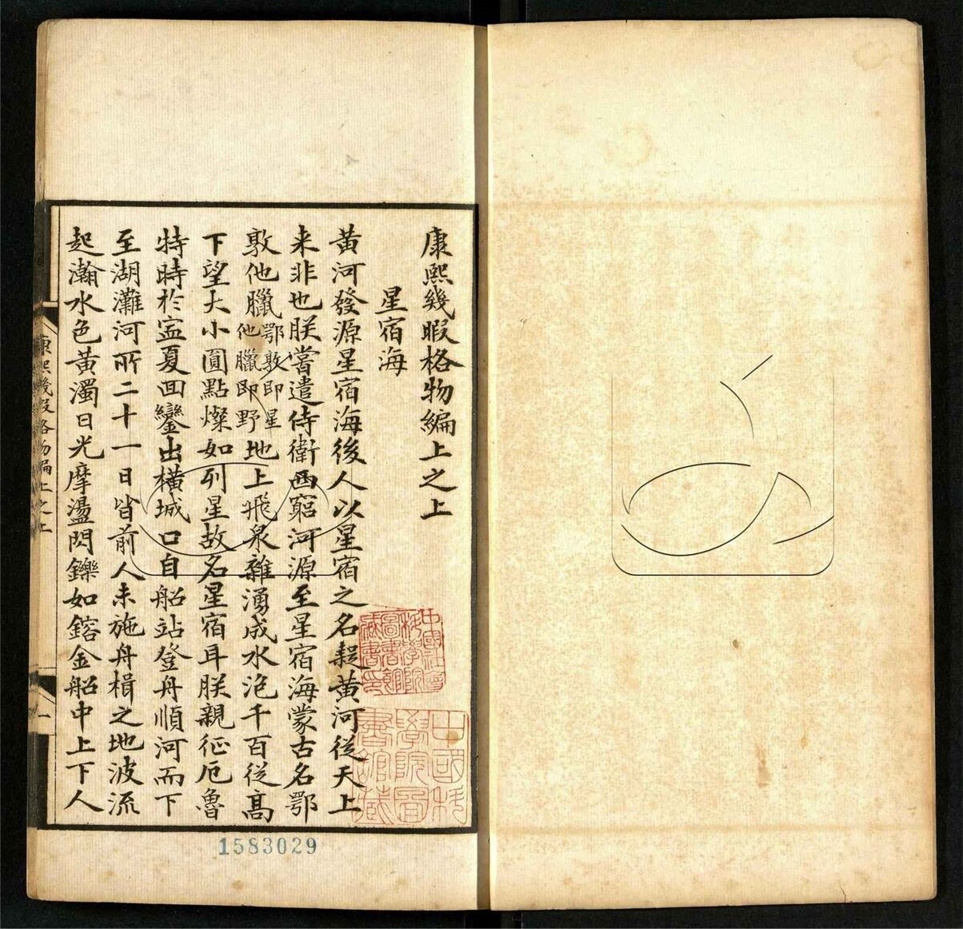 康熙幾暇格物編上之上
星宿海
黃河發源星宿海後人以星宿之名遂黃河從天上
来非也朕嘗遣侍衛西窮河源至星宿海蒙古名鄂
敦他臘鄂敦即星他臘即野地上飛泉雜湧成水泡千百從髙
下望大小圓點燦如列星故名星宿耳朕親征厄魯
特時於寍夏回鑾出橫城口自船站登舟順河而下
至湖灘河所二十一日皆前人未施舟楫之地波流
起瀚水色黃濁日光摩盪閃鑠如鎔金船中上下人
康熙幾暇格物編上之上
一
中國科學院圖書館藏
1583029